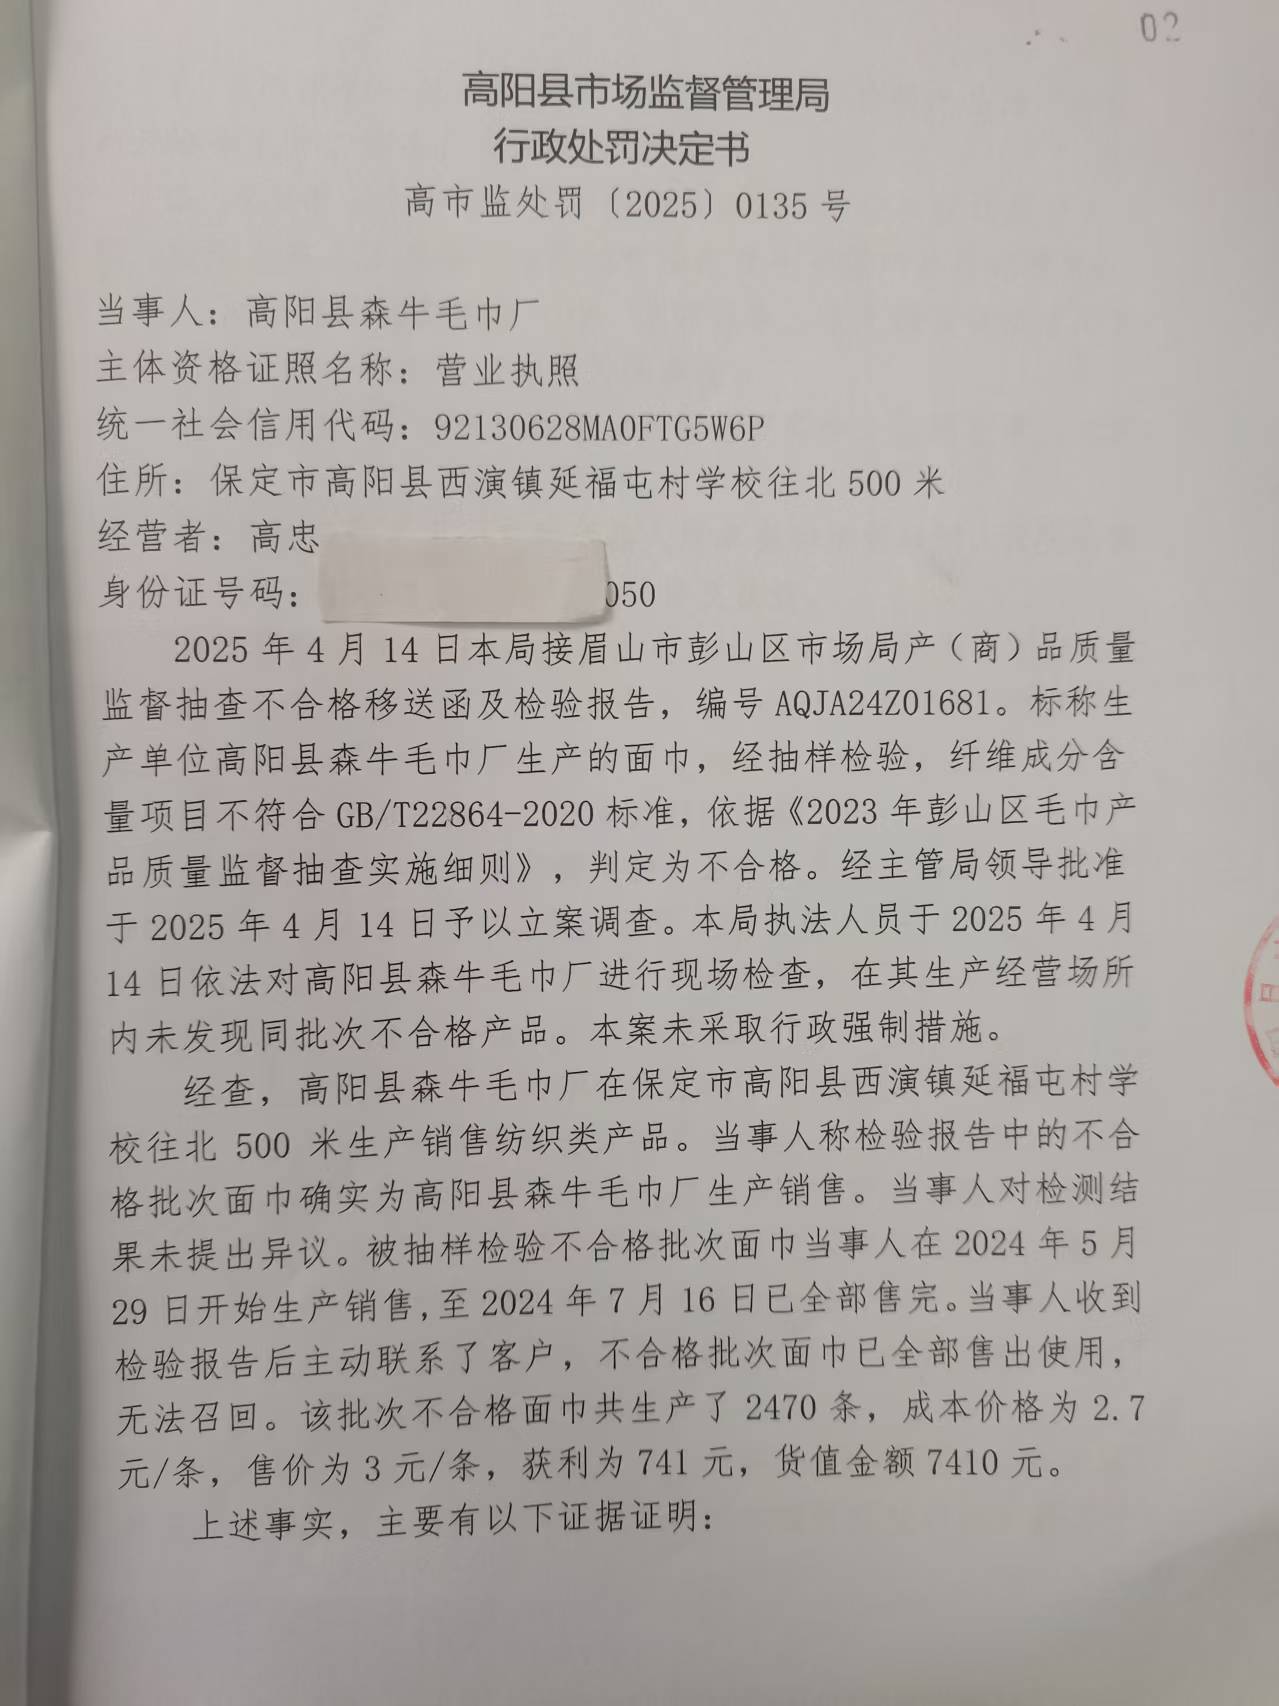 02
高阳县市场监督管理局
行政处罚决定书
高市监处罚〔2025〕0135号
当事人：高阳县森牛毛巾厂
主体资格证照名称：营业执照
统一社会信用代码：92130628MA0FTG5W6P
住所：保定市高阳县西演镇延福屯村学校往北500米
经营者：高忠
身份证号码：050
2025年4月14日本局接眉山市彭山区市场局产（商）品质量
监督抽查不合格移送函及检验报告，编号AQJA24Z01681。标称生
产单位高阳县森牛毛巾厂生产的面巾，经抽样检验，纤维成分含
量项目不符合GB/T22864-2020标准，依据《2023年彭山区毛巾产
品质量监督抽查实施细则》，判定为不合格。经主管局领导批准
于2025年4月14日予以立案调查。本局执法人员于2025年4月
14日依法对高阳县森牛毛巾厂进行现场检查，在其生产经营场所
内未发现同批次不合格产品。本案未采取行政强制措施。
经查，高阳县森牛毛巾厂在保定市高阳县西演镇延福屯村学
校往北500米生产销售纺织类产品。当事人称检验报告中的不合
格批次面巾确实为高阳县森牛毛巾厂生产销售。当事人对检测结
果未提出异议。被抽样检验不合格批次面巾当事人在2024年5月
29日开始生产销售,至2024年7月16日已全部售完。当事人收到
检验报告后主动联系了客户，不合格批次面巾已全部售出使用，
无法召回。该批次不合格面巾共生产了2470条，成本价格为2.7
元/条，售价为3元/条，获利为741元，货值金额7410元。
上述事实，主要有以下证据证明：